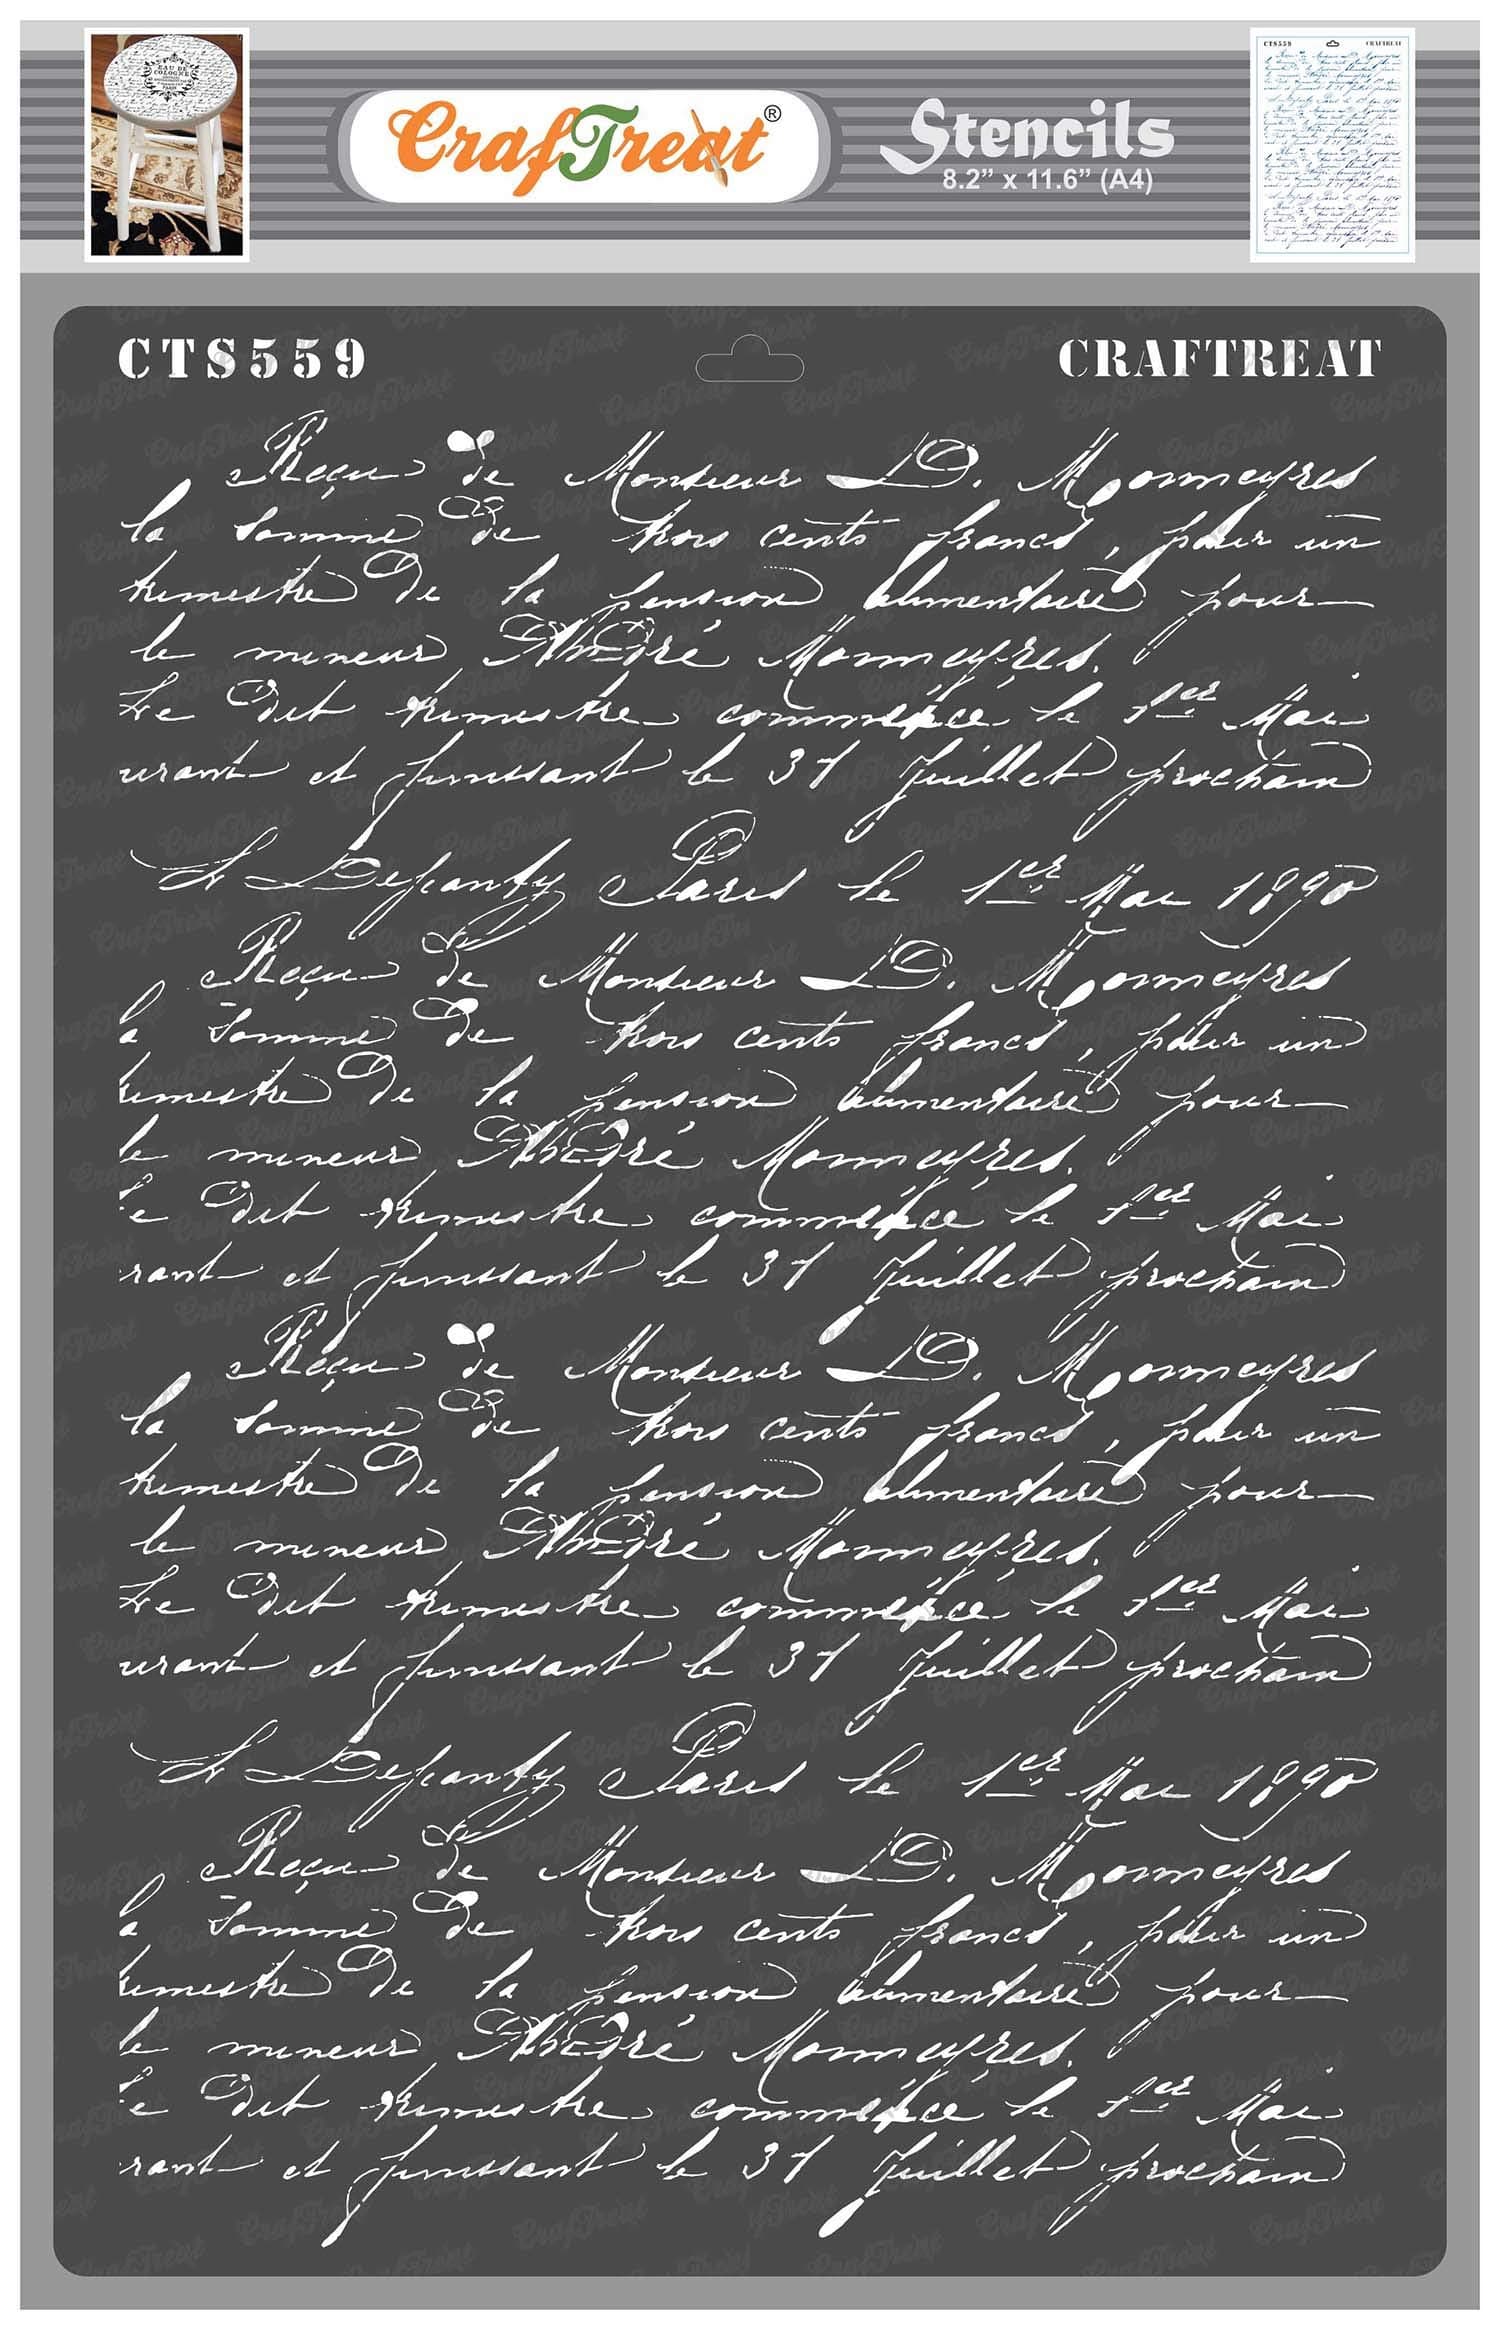 CrafTreat®
Stencils
8.2” x 11.6” (A4)
CTS559 CRAFTREAT
Reçu de Monsieur D. Monmeyres
la somme de trois cents francs, pour un
trimestre de la pension alimentaire pour
le mineur André Monmeyres.
Le dit trimestre commencé le 1er Mai
urant et finissant le 31 Juillet prochain
Paris le 1er Mai 1890
Reçu de Monsieur D. Monmeyres
la somme de trois cents francs, pour un
trimestre de la pension alimentaire pour
le mineur André Monmeyres.
Le dit trimestre commencé le 1er Mai
rant et finissant le 31 Juillet prochain
Reçu de Monsieur D. Monmeyres
la somme de trois cents francs, pour un
trimestre de la pension alimentaire pour
le mineur André Monmeyres.
Le dit trimestre commencé le 1er Mai
urant et finissant le 31 Juillet prochain
Paris le 1er Mai 1890
Reçu de Monsieur D. Monmeyres
la somme de trois cents francs, pour un
trimestre de la pension alimentaire pour
le mineur André Monmeyres.
Le dit trimestre commencé le 1er Mai
rant et finissant le 31 Juillet prochain